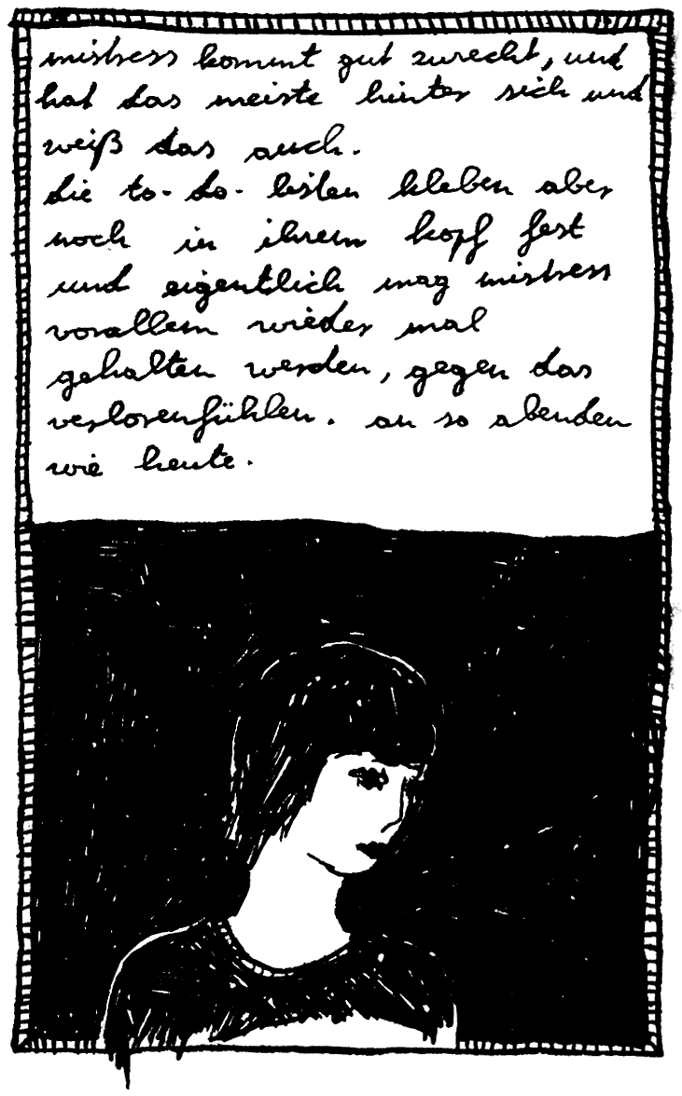 mistress kommt gut zurecht, und
hat das meiste hinter sich und
weiß das auch.
die to-do-listen kleben aber
noch in ihrem kopf fest
und eigentlich mag mistress
vorallem wieder mal
gehalten werden, gegen das
verlorenfühlen. an so abenden
wie heute.